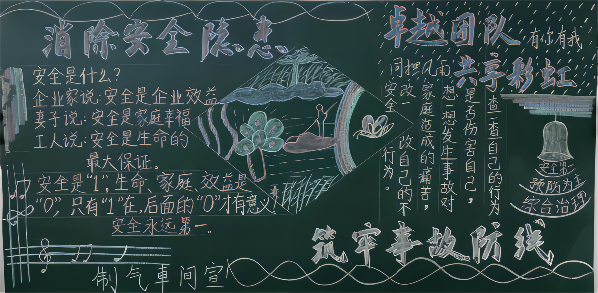 消除安全隐患
安全是什么？
企业家说：安全是企业效益
妻子说：安全是家庭幸福
工人说：安全是生命的
最大保证。
安全是“1”，生命、家庭、效益是
“0”，只有“1”在，后面的“0”才有意义！
安全永远第一。
制气車间宣
卓越团队 有你有我
同担风雨 共享彩虹
查一查自己的行为
是否伤害自己，
想一想发生事故对
家庭造成的痛苦，
改一改自己的不
安全行为。
安全第一
预防为主
综合治理
筑牢事故防线